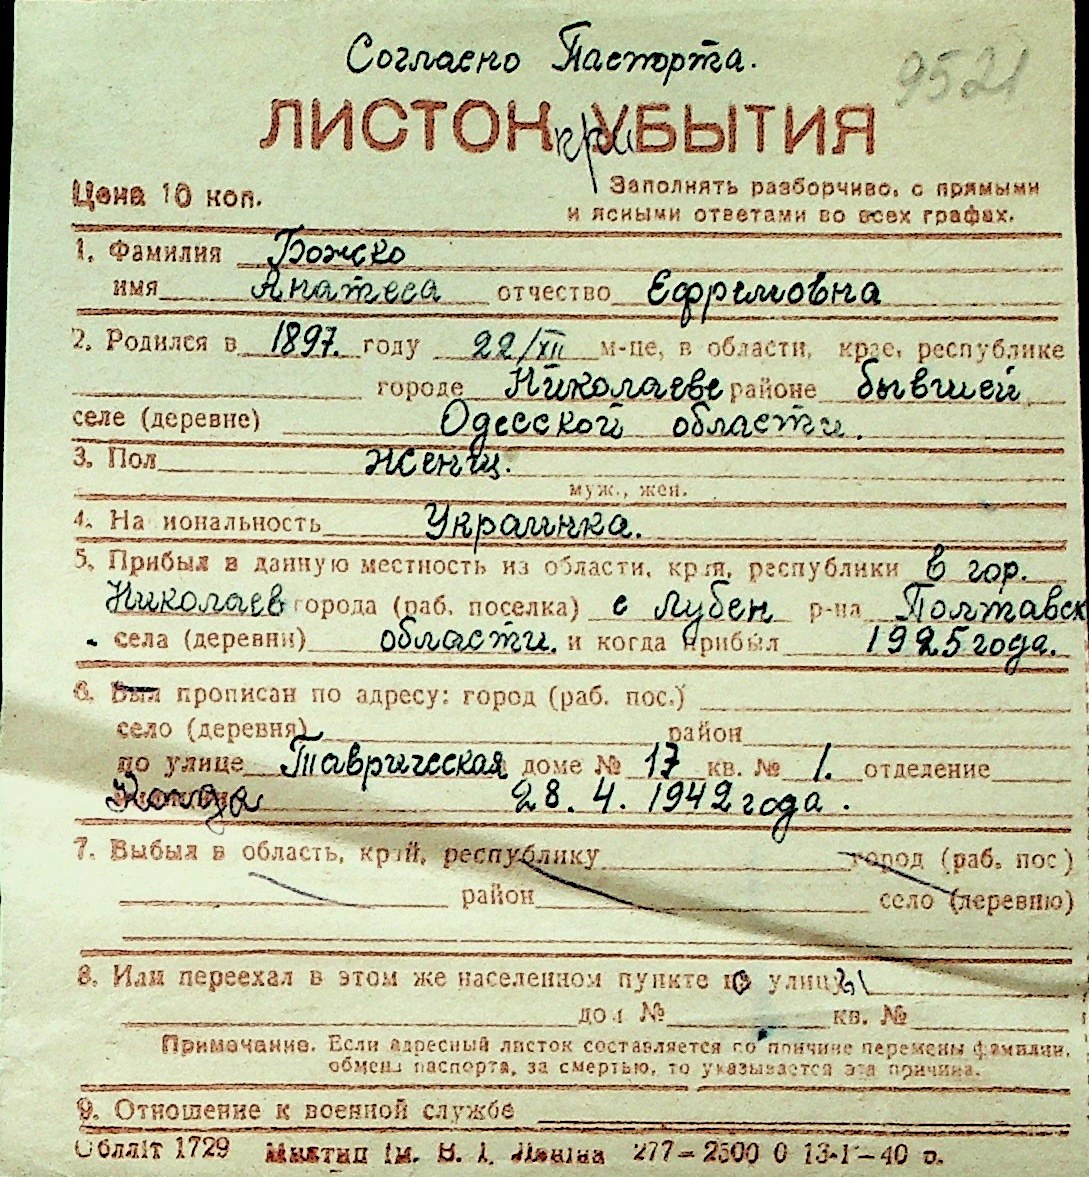 Согласно Паспорта.
9521
ЛИСТОК УБЫТИЯ
при
Цена 10 коп.
Заполнять разборчиво, с прямыми
и ясными ответами во всех графах.
1. Фамилия Божско
имя Анатеса отчество Ефремовна
2. Родился в 1897. году 22/XII м-це, в области, крае, республике
городе Николаеве районе бывшей
селе (деревне) Одесской области.
3. Пол женщ.
муж., жен.
4. На иональность Украинка.
5. Прибыл в данную местность из области, края, республики в гор.
Николаев города (раб. поселка) с Лубен р-на Полтавск
села (деревни) области. и когда прибыл 1925 года.
6. Был прописан по адресу: город (раб. пос.)
село (деревня) район
по улице Таврическая доме № 17 кв. № 1. отделение
Когда 28. 4. 1942 года.
7. Выбыл в область, край, республику город (раб. пос)
район село (деревню)
8. Или переехал в этом же населенном пункте по улицу
дом № кв. №
Примечание. Если адресный листок составляется по причине перемены фамилии,
обмена паспорта, за смертью, то указывается эта причина.
9. Отношение к военной службе
Облліт 1729 Миктип ім. В. І. Леніна 277–2500 0 13-І–40 р.